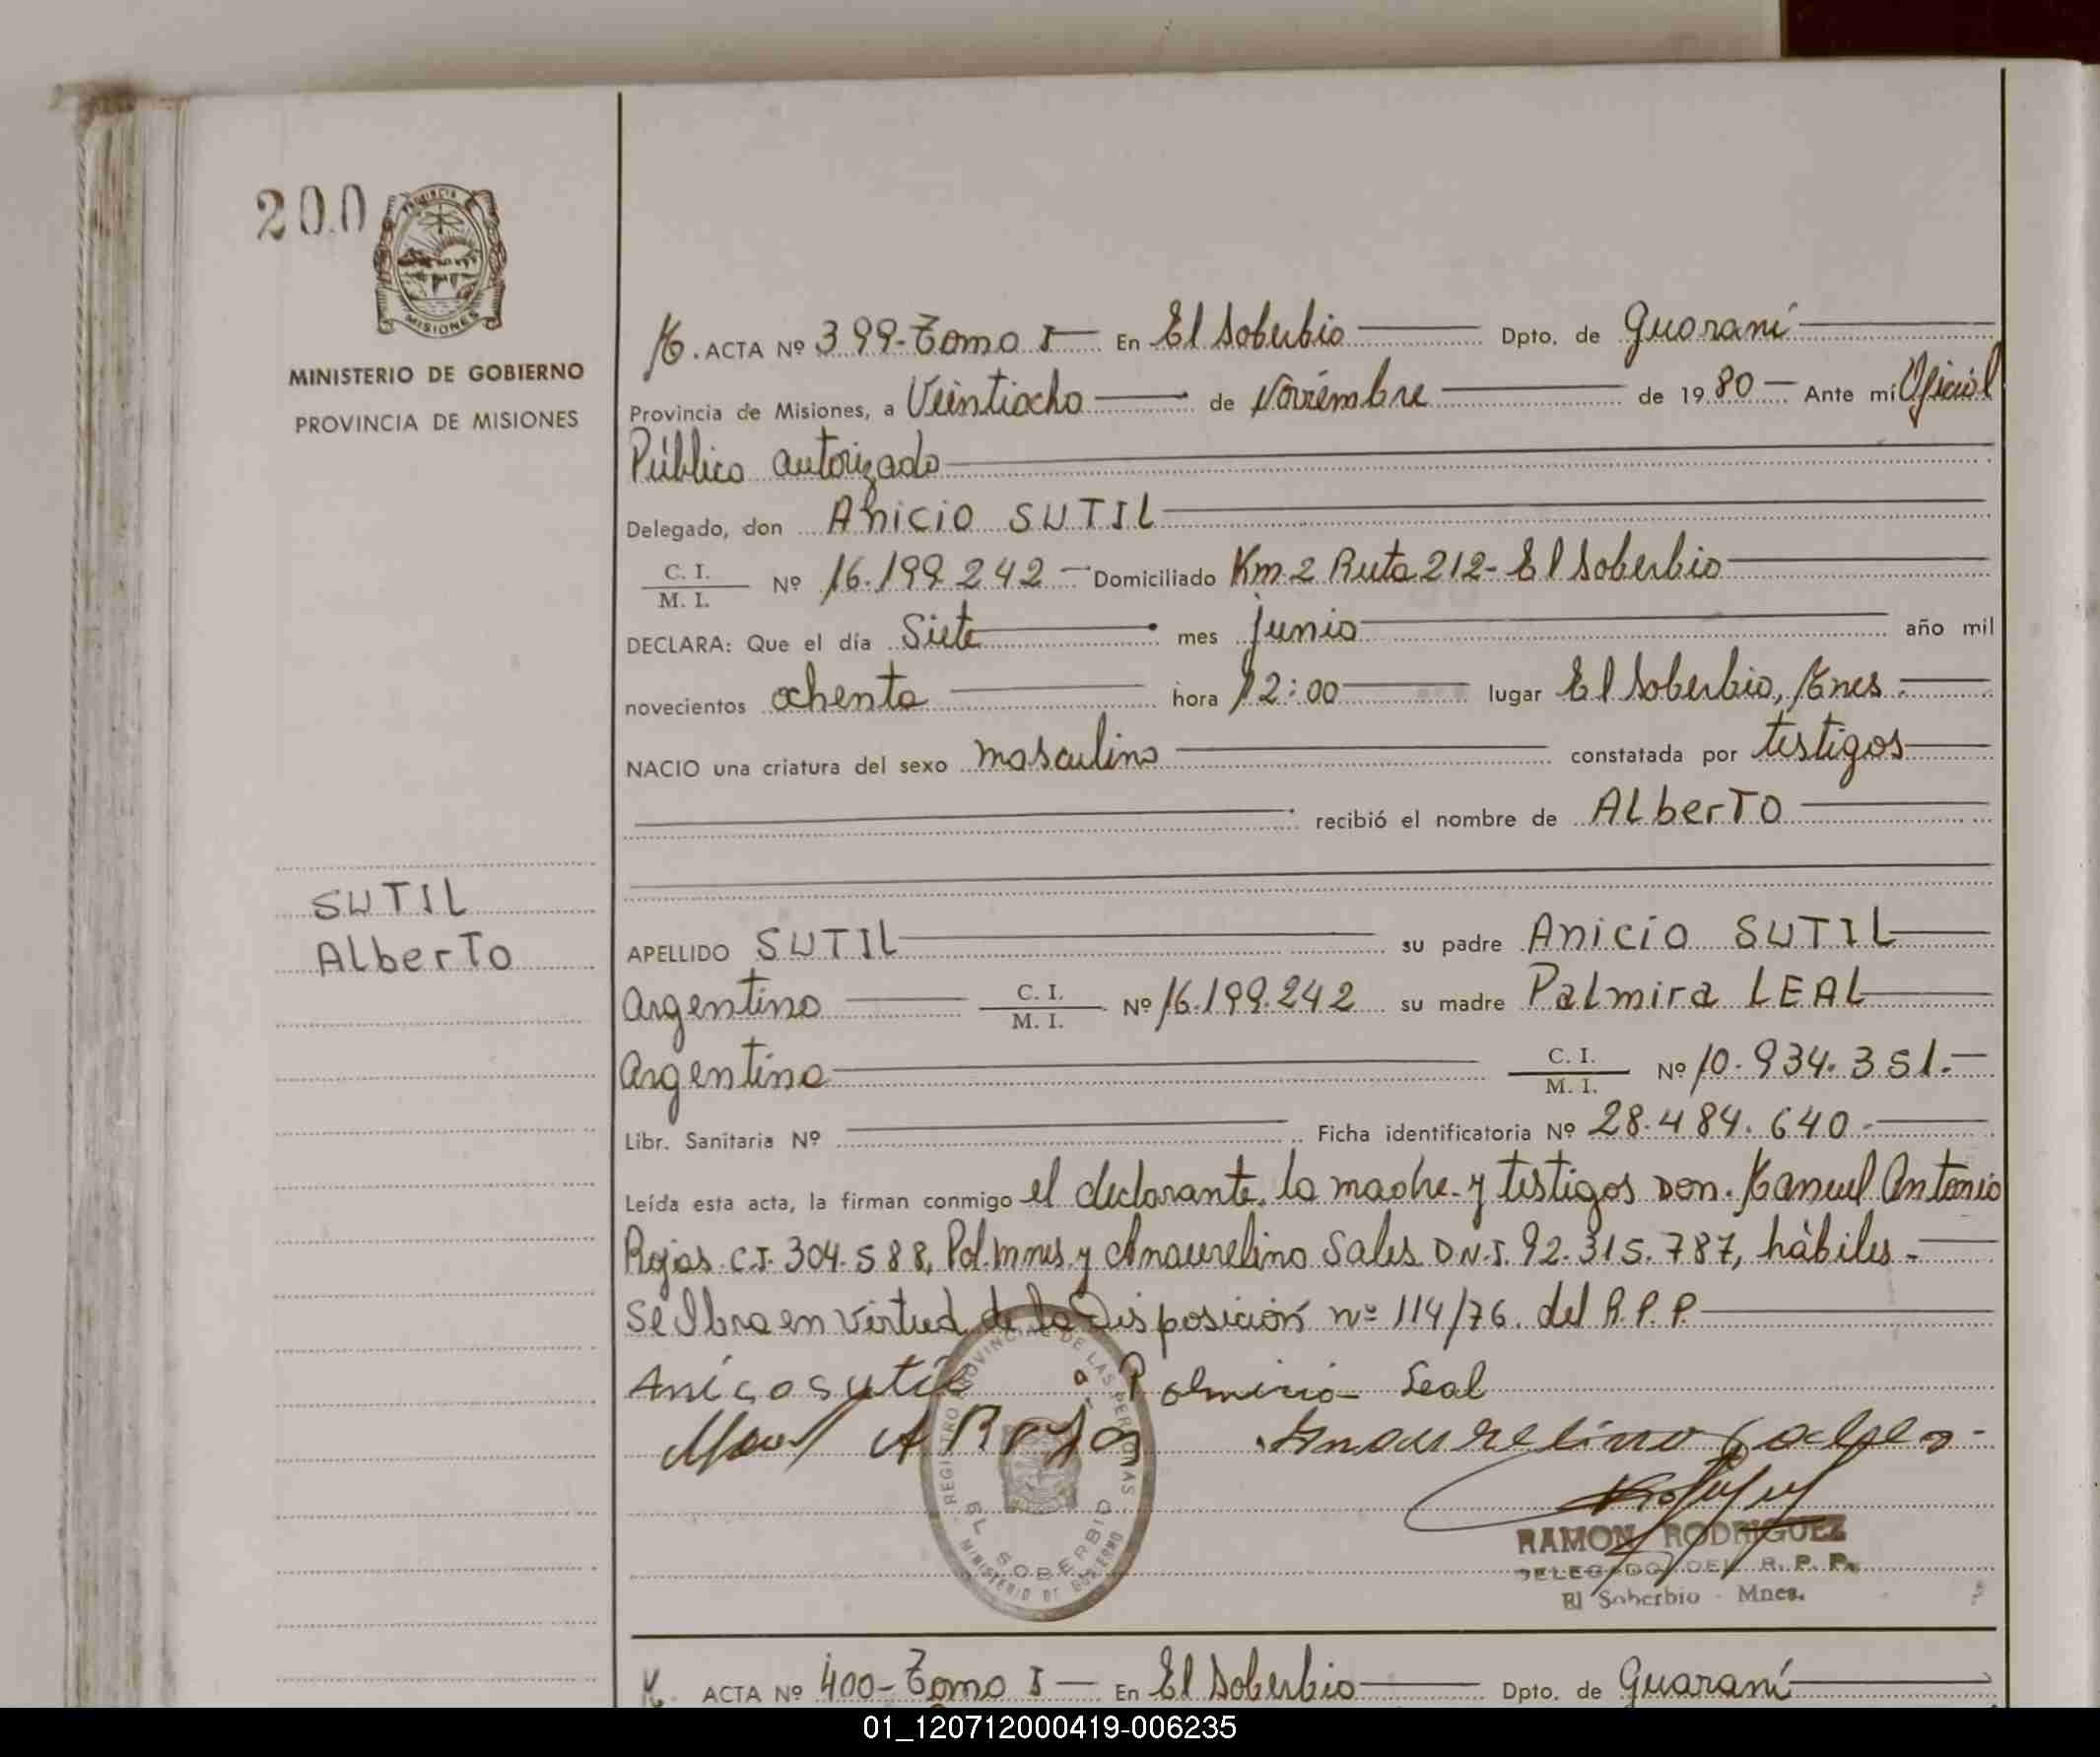 200
PROVINCIA
MISIONES
MINISTERIO DE GOBIERNO
PROVINCIA DE MISIONES
M. ACTA Nº 399-Tomo I En El Soberbio Dpto. de Guaraní
Provincia de Misiones, a Veintiocho de Noviembre de 1980 Ante mí Oficial
Público autorizado
Delegado, don Anicio SUTIL
C. I.
M. I. Nº 16.199.242 Domiciliado Km. 2 Ruta 212- El Soberbio
DECLARA: Que el día Siete mes junio año mil
novecientos ochenta hora 12:00 lugar El Soberbio, Mnes.
NACIO una criatura del sexo masculino constatada por testigos
recibió el nombre de ALberTO
SUTIL
ALberTo
APELLIDO SUTIL su padre Anicio SUTIL
Argentino C. I.
M. I. Nº 16.199.242 su madre Palmira LEAL
Argentina C. I.
M. I. Nº 10.934.351.-
Libr. Sanitaria Nº Ficha identificatoria Nº 28.484.640.-
Leída esta acta, la firman conmigo el declarante, la madre y testigos Don. Manuel Antonio
Rojas C.I. 304.588, Pol. Mnes y Anaurelino Sales D.N.I. 92.315.787, hábiles.-
Se labra en virtud de la Disposición nº 114/76. del R.P.P.
Anicosutil Palmiria Leal
A Rojas
REGISTRO PROVINCIAL DE LAS PERSONAS
EL SOBERBIO
MINISTERIO DE GOBIERNO
RAMON RODRIGUEZ
DELEGADO DEL R. P. P.
El Soberbio - Mnes.
M. ACTA Nº 400-Tomo I En El Soberbio Dpto. de Guaraní
01_120712000419-006235